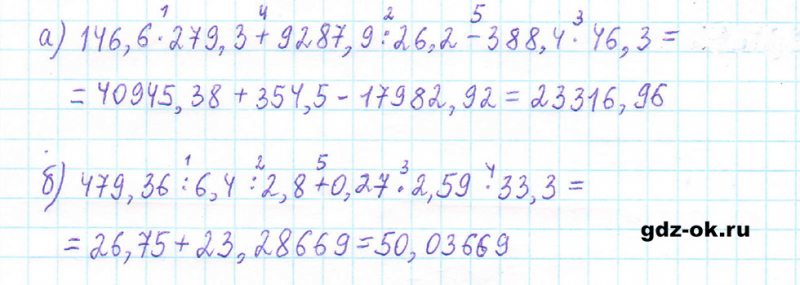 а) 146,6 · 279,3 + 9287,9 : 26,2 - 388,4 · 46,3 =
1 4 2 5 3
= 40945,38 + 354,5 - 17982,92 = 23316,96
б) 479,36 : 6,4 : 2,8 + 0,27 · 2,59 · 33,3 =
1 2 5 3 4
= 26,75 + 23,28669 = 50,03669
gdz-ok.ru